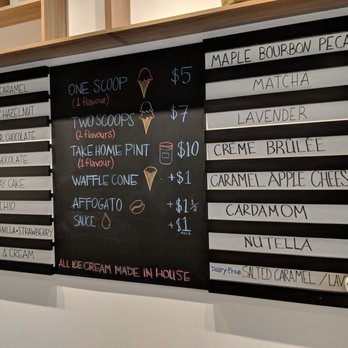 CARAMEL
HAZELNUT
CHOCOLATE
CHOCOLATE
CAKE
VANILLA + STRAWBERRY
& CREAM
ONE SCOOP $5
(1 flavour)
TWO SCOOPS $7
(2 flavours)
TAKE HOME PINT $10
(1 flavour)
WAFFLE CONE +$1
AFFOGATO +$1½
SAUCE +$1
ALL ICE CREAM MADE IN HOUSE
MAPLE BOURBON PECA
MATCHA
LAVENDER
CRÈME BRÛLÉE
CARAMEL APPLE CHEES
CARDAMOM
NUTELLA
Dairy Free SALTED CARAMEL / LAV